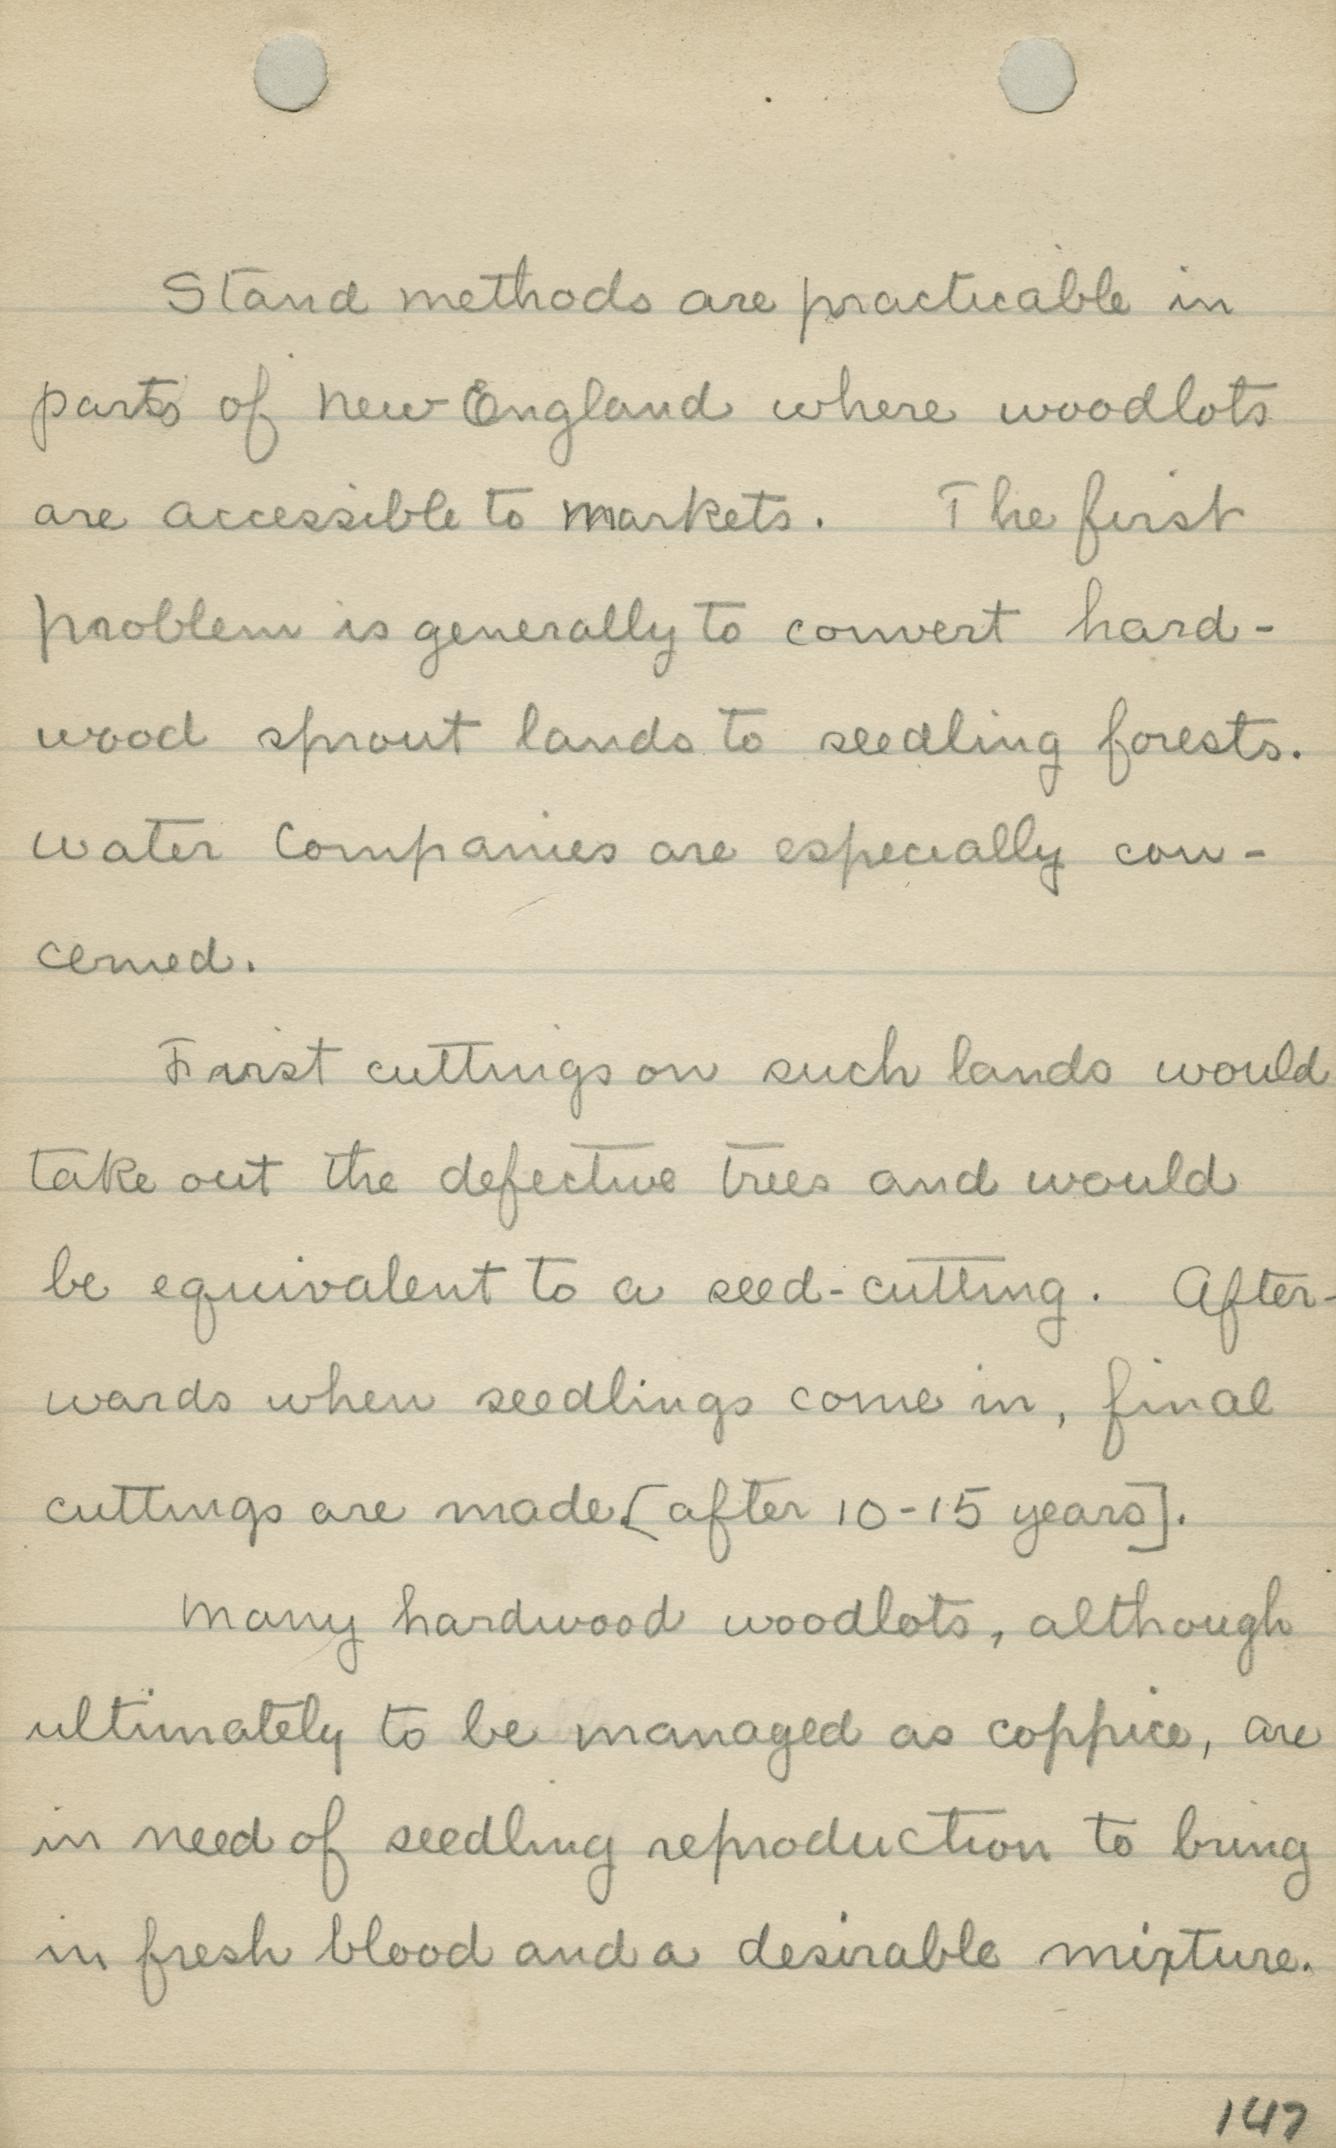 Stand methods are practicable in
parts of New England where woodlots
are accessible to markets. The first
problem is generally to convert hard-
wood sprout lands to seedling forests.
Water Companies are especially con-
cerned.
First cuttings on such lands would
take out the defective trees and would
be equivalent to a seed-cutting. After-
wards when seedlings come in, final
cuttings are made.[after 10-15 years].
Many hardwood woodlots, although
ultimately to be managed as coppice, are
in need of seedling reproduction to bring
in fresh blood and a desirable mixture.
147